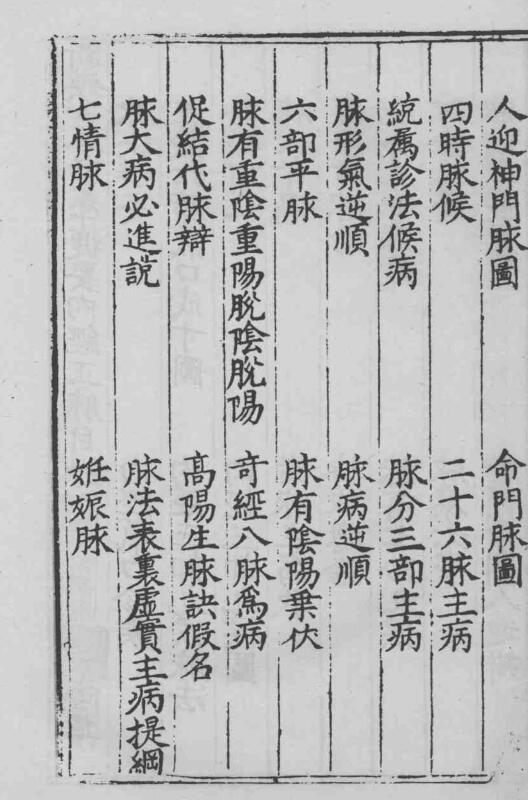 人迎神門脉圖　命門脉圖
四時脉候　二十六脉主病
統屬診法候病　脉分三部主病
脉形氣逆順　脉病逆順
六部平脉　脉有陰陽乗伏
脉有重陰重陽脫陰脫陽　奇經八脉爲病
促結代脉辯　高陽生脉訣假名
脉大病必進說　脉法表裏虛實主病提綱
七情脉　姙娠脉